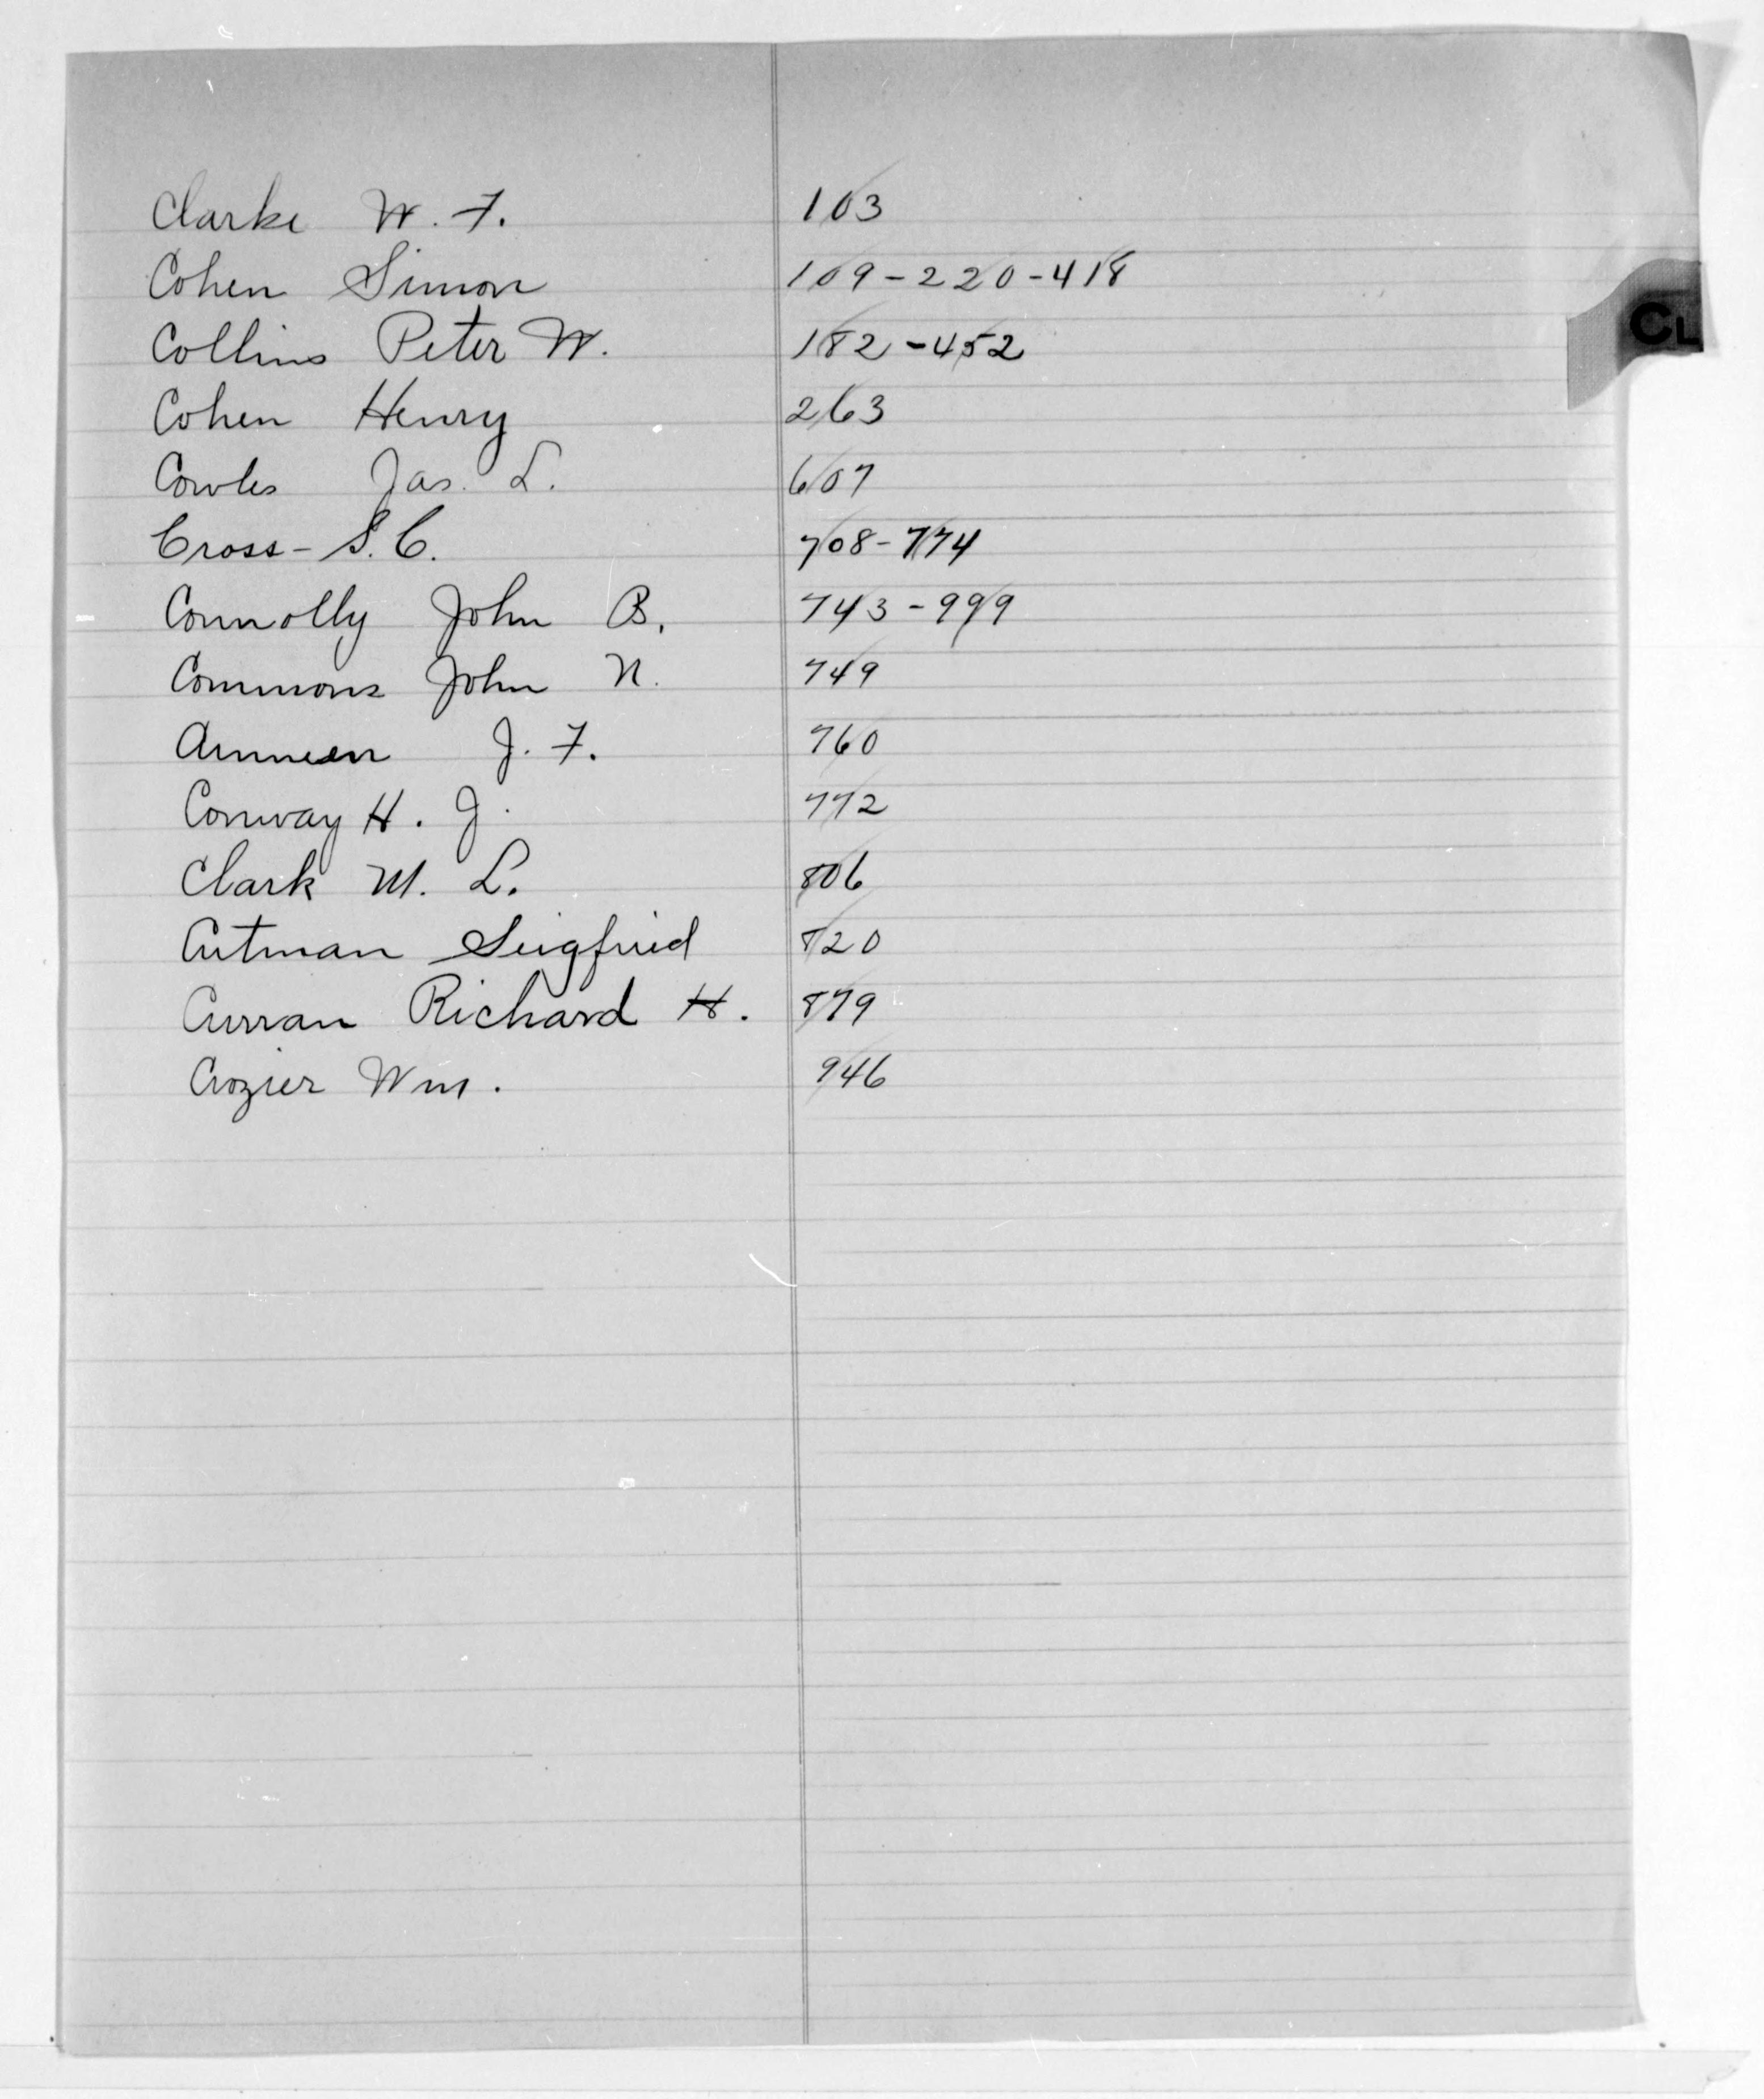 Clarke W. F. 103
Cohen Simon 109-220-418
CL
Collins Peter W. 182-452
Cohen Henry 263
Cowles Jas. L. 607
Cross- S. C. 708-774
Connolly John B. 743-999
Commons John 749
J. F. 760
Conway H. J. 772
Clark M. L. 806
Cutman Seigfried 820
Curran Richard H. 879
Crozier Wm. 946